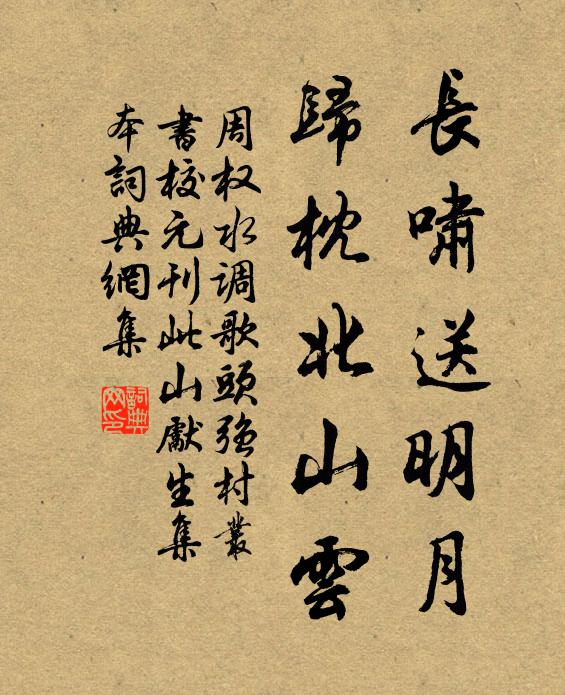 長嘯送明月
歸枕北山雲
周权水调歌頭強村叢
書校元刊此山獻生集
本詞典網集
詞典網印